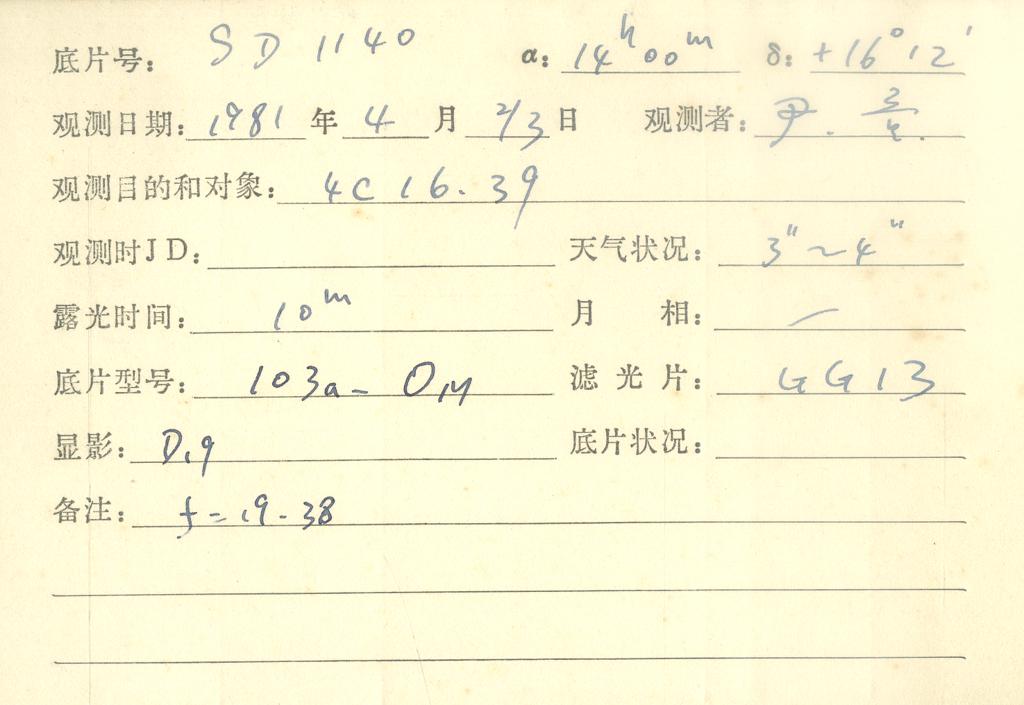 底片号: SD 1140 α: 14h00m δ: +16°12'
观测日期: 1981 年 4 月 2/3 日 观测者: 尹.
观测目的和对象: 4C 16.39
观测时JD: 天气状况: 3"~4"
露光时间: 10m 月 相: —
底片型号: 103a-O 滤光片: GG13
显影: D19 底片状况:
备注: f=19.38